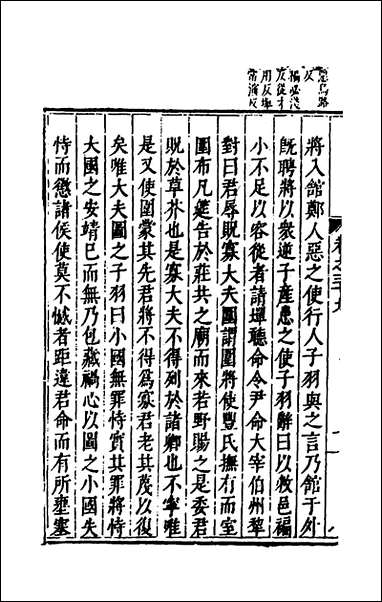 惡烏路
反
褊必淺
反從才
用反墠
常演反
將入館鄭人惡之使行人子羽與之言乃館于外
既聘將以衆逆子產患之使子羽辭曰以敝邑褊
小不足以容從者請墠聽命令尹命大宰伯州犂
對曰君辱貺寡大夫圍謂圍將使豐氏撫有而室
圍布几筵告於莊共之廟而來若野賜之是委君
貺於草芥也是寡大夫不得列於諸卿也不寧唯
是又使圍蒙其先君將不得爲寡君老其蔑以復
矣唯大夫圖之子羽曰小國無罪恃實其罪將恃
大國之安靖已而無乃包藏禍心以圖之小國失
恃而懲諸侯使莫不憾者距違君命而有所壅塞